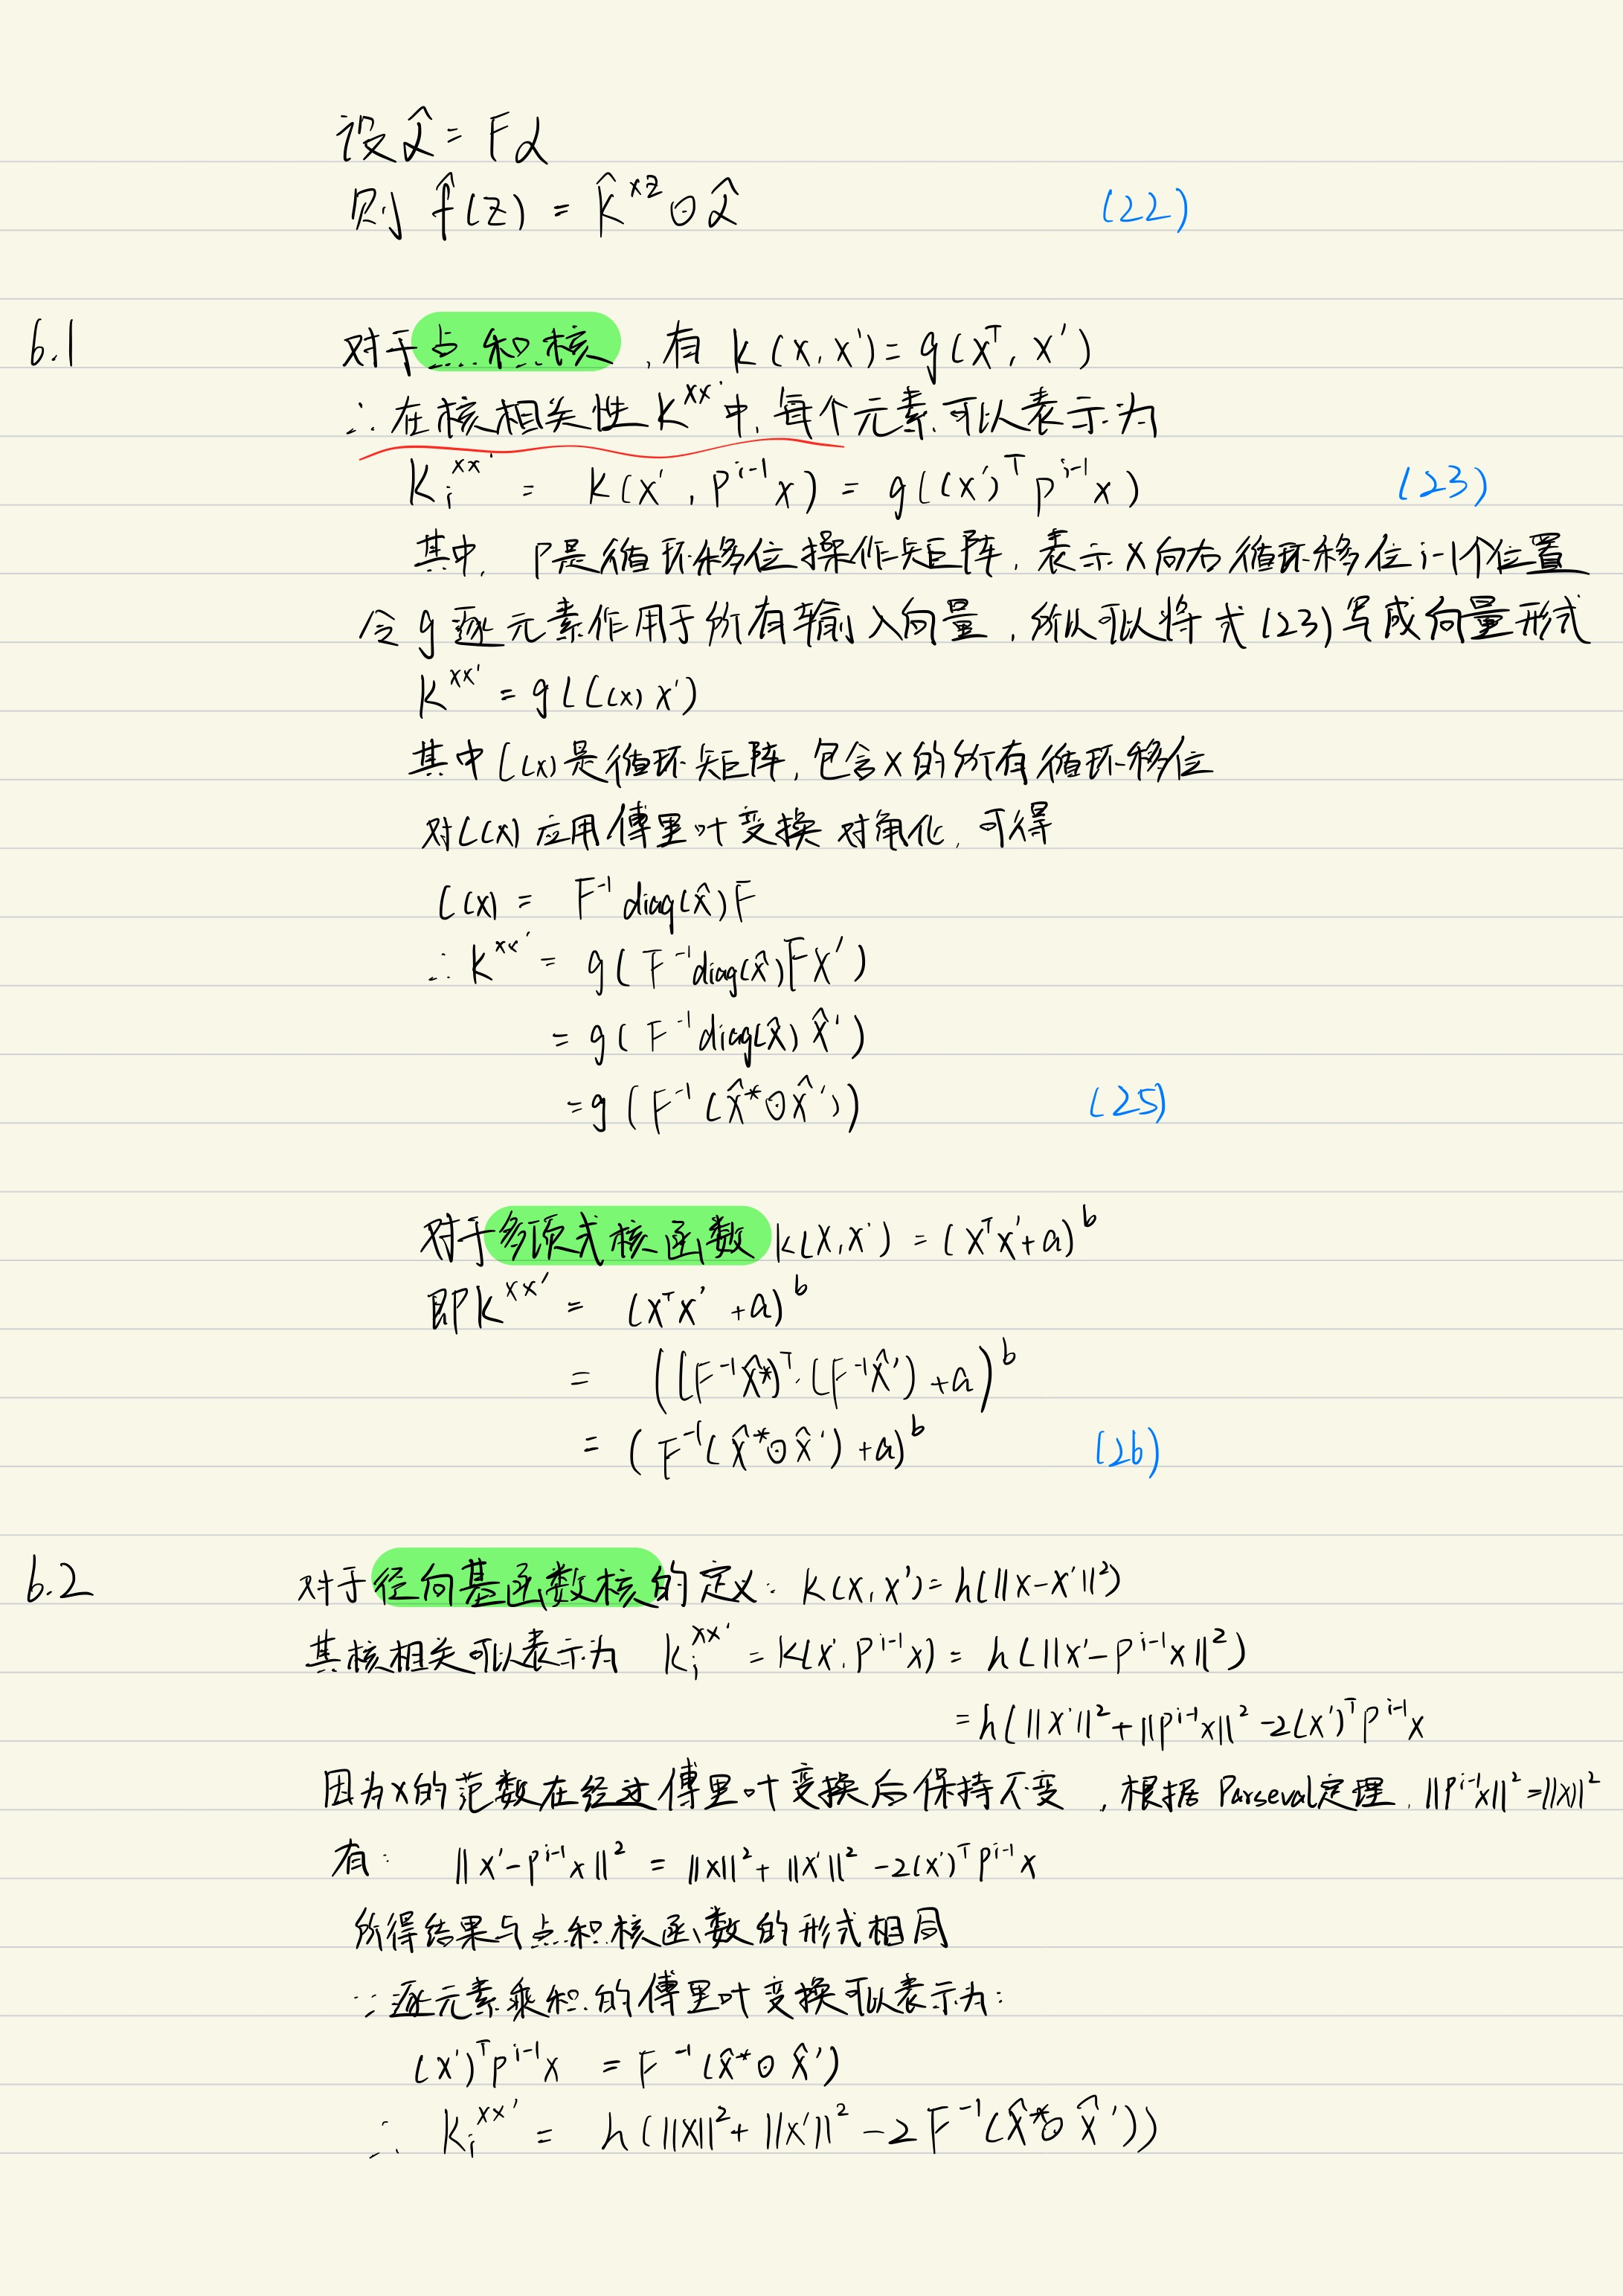 设 α̂ = Fα
则 f̂(z) = k̂^{xz} ⊙ α̂ (22)
6.1 对于点积核,有 k(x, x') = g(x^T, x')
∴ 在核相关性 k^{xx'} 中,每个元素可以表示为
k_i^{xx'} = k(x', P^{i-1}x) = g((x')^T P^{i-1}x) (23)
其中,P是循环移位操作矩阵,表示x向右循环移位i-1个位置
令g逐元素作用于所有输入向量,所以可以将式(23)写成向量形式
k^{xx'} = g(C(x) x')
其中C(x)是循环矩阵,包含x的所有循环移位
对C(x)应用傅里叶变换对角化,可得
C(x) = F^{-1} diag(x̂)F
∴ k^{xx'} = g(F^{-1}diag(x̂)Fx')
= g(F^{-1}diag(x̂) x̂')
= g(F^{-1}(x̂* ⊙ x̂')) (25)
对于多项式核函数 k(x, x') = (x^T x' + a)^b
即k^{xx'} = (x^T x' + a)^b
= ((F^{-1}x̂*)^T · (F^{-1}x̂') + a)^b
= (F^{-1}(x̂* ⊙ x̂') + a)^b (26)
6.2 对于径向基函数核的定义: k(x, x') = h(||x-x'||²)
其核相关可以表示为 k_i^{xx'} = k(x', P^{i-1}x) = h(||x' - P^{i-1}x||²)
= h(||x'||² + ||P^{i-1}x||² - 2(x')^T P^{i-1}x
因为x的范数在经过傅里叶变换后保持不变,根据Parseval定理,||P^{i-1}x||² = ||x||²
有: ||x' - P^{i-1}x||² = ||x||² + ||x'||² - 2(x')^T P^{i-1}x
所得结果与点积核函数的形式相同
∵ 逐元素乘积的傅里叶变换可以表示为:
(x')^T P^{i-1}x = F^{-1}(x̂* ⊙ x̂')
∴ k_i^{xx'} = h(||x||² + ||x'||² - 2F^{-1}(x̂* ⊙ x̂'))